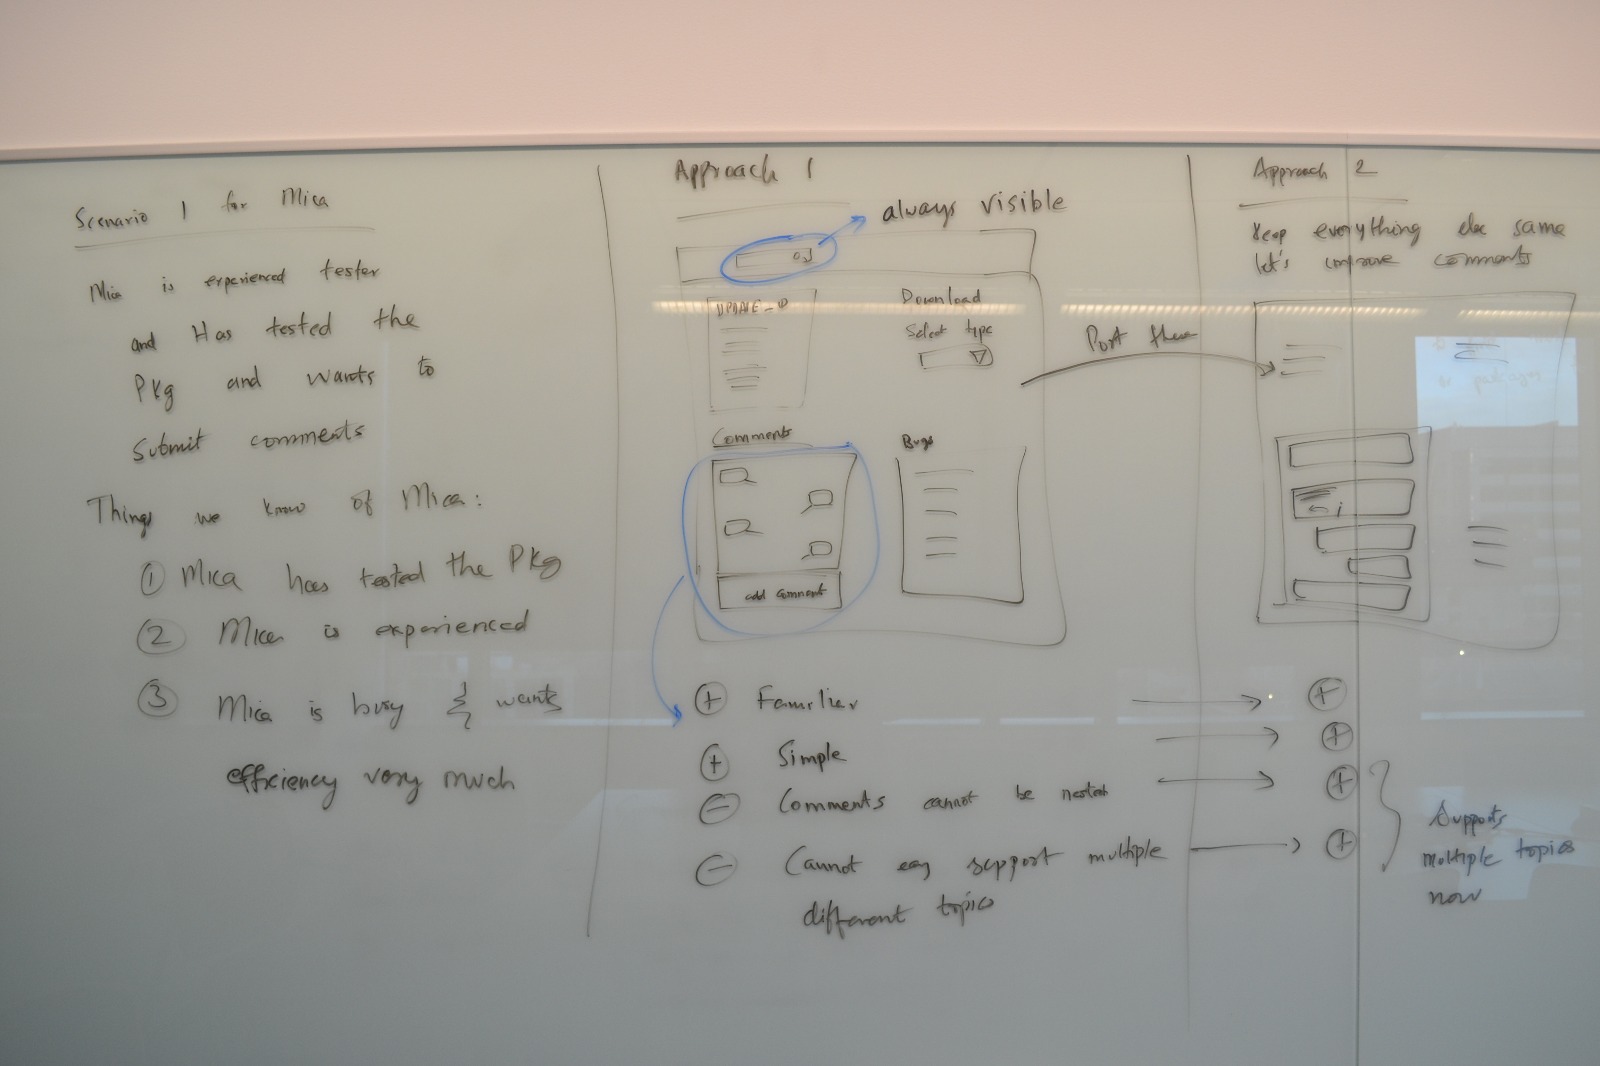 Scenario 1 for Mica
Mica is experienced tester
and Has tested the
Pkg and wants to
Submit comments
Things we know of Mica:
① Mica has tested the Pkg
② Mica is experienced
③ Mica is busy & wants
efficiency very much
Approach 1
always visible
UPDATE_ID
Download
Select type
Comments
add comments
Bugs
Port these
⊕ Familier
⊕ Simple
⊖ Comments cannot be nested
⊖ Cannot easy support multiple
different topics
Approach 2
Keep everything else same
let's improve comments
⊕
⊕
⊕
⊕
Supports
multiple topics
now